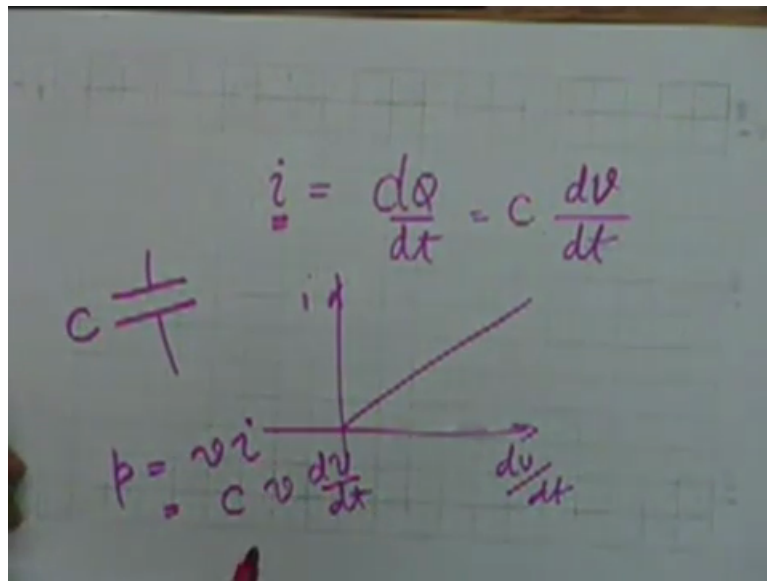 i = dQ/dt = C dv/dt
i
C
dv/dt
p = vi
= C v dv/dt